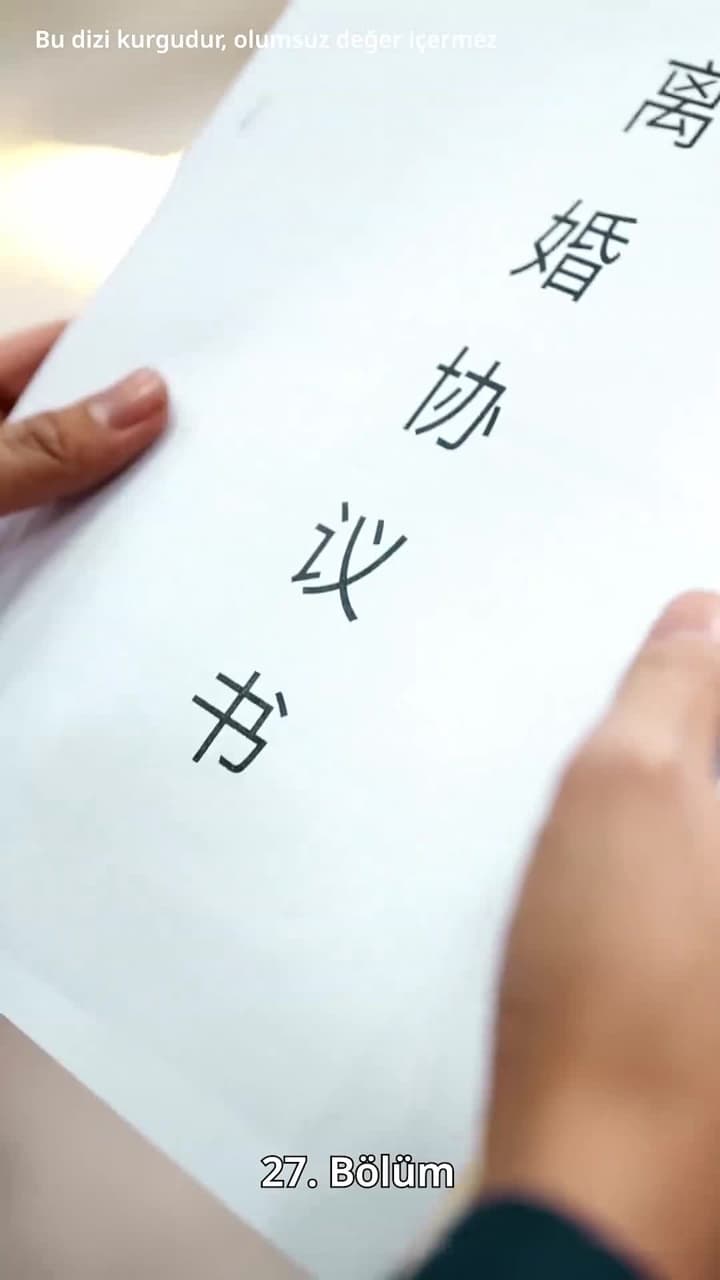 Bu dizi kurgudur, olumsuz değer içermez
离婚协议书
27. Bölüm